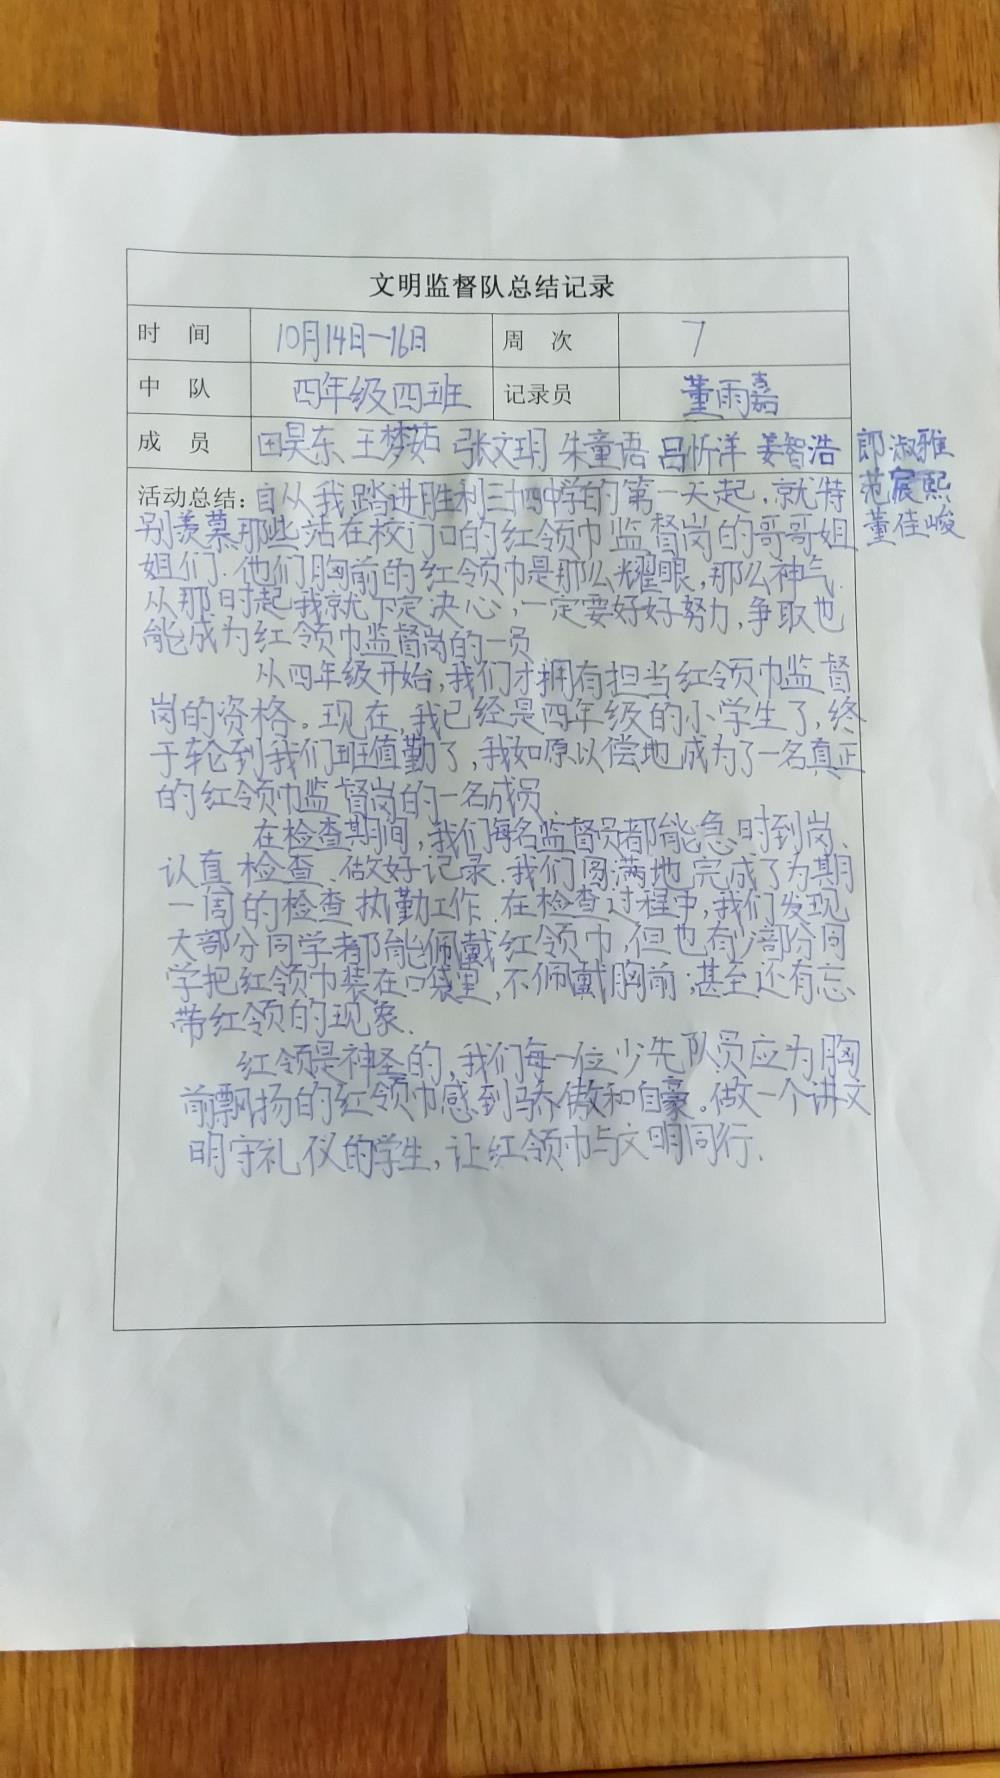 文明监督队总结记录
时 间 10月14日—16日 周 次 7
中 队 四年级四班 记录员 董雨嘉
成 员 田昊东 王梦茹 张文玥 朱童语 吕忻洋 姜智浩 郎淑雅
范宸熙
董佳峻
活动总结：自从我踏进胜利三十四中学的第一天起，就特
别羡慕那些站在校门口的红领巾监督岗的哥哥姐
姐们.他们胸前的红领巾是那么耀眼，那么神气.
从那时起我就下定决心，一定要好好努力，争取也
能成为红领巾监督岗的一员
从四年级开始，我们才拥有担当红领巾监督
岗的资格。现在，我已经是四年级的小学生了，终
于轮到我们班值勤了，我如原以偿地成为了一名真正
的红领巾监督岗的一名成员.
在检查期间，我们每名监督员都能急时到岗、
认真检查、做好记录.我们圆满地完成了为期
一周的检查执勤工作.在检查过程中，我们发现
大部分同学都能佩戴红领巾，但也有少部分同
学把红领巾装在口袋里，不佩戴胸前，甚至还有忘
带红领的现象.
红领是神圣的，我们每一位少先队员应为胸
前飘扬的红领巾感到骄傲和自豪。做一个讲文
明守礼仪的学生，让红领巾与文明同行.